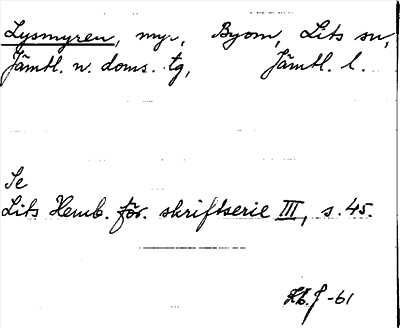 Lysmyren, myr, Byom, Lits sn,
Jämtl. n. doms. tg, Jämtl. l.
Se
Lits Hemb. för. skriftserie III, s. 45.
-61